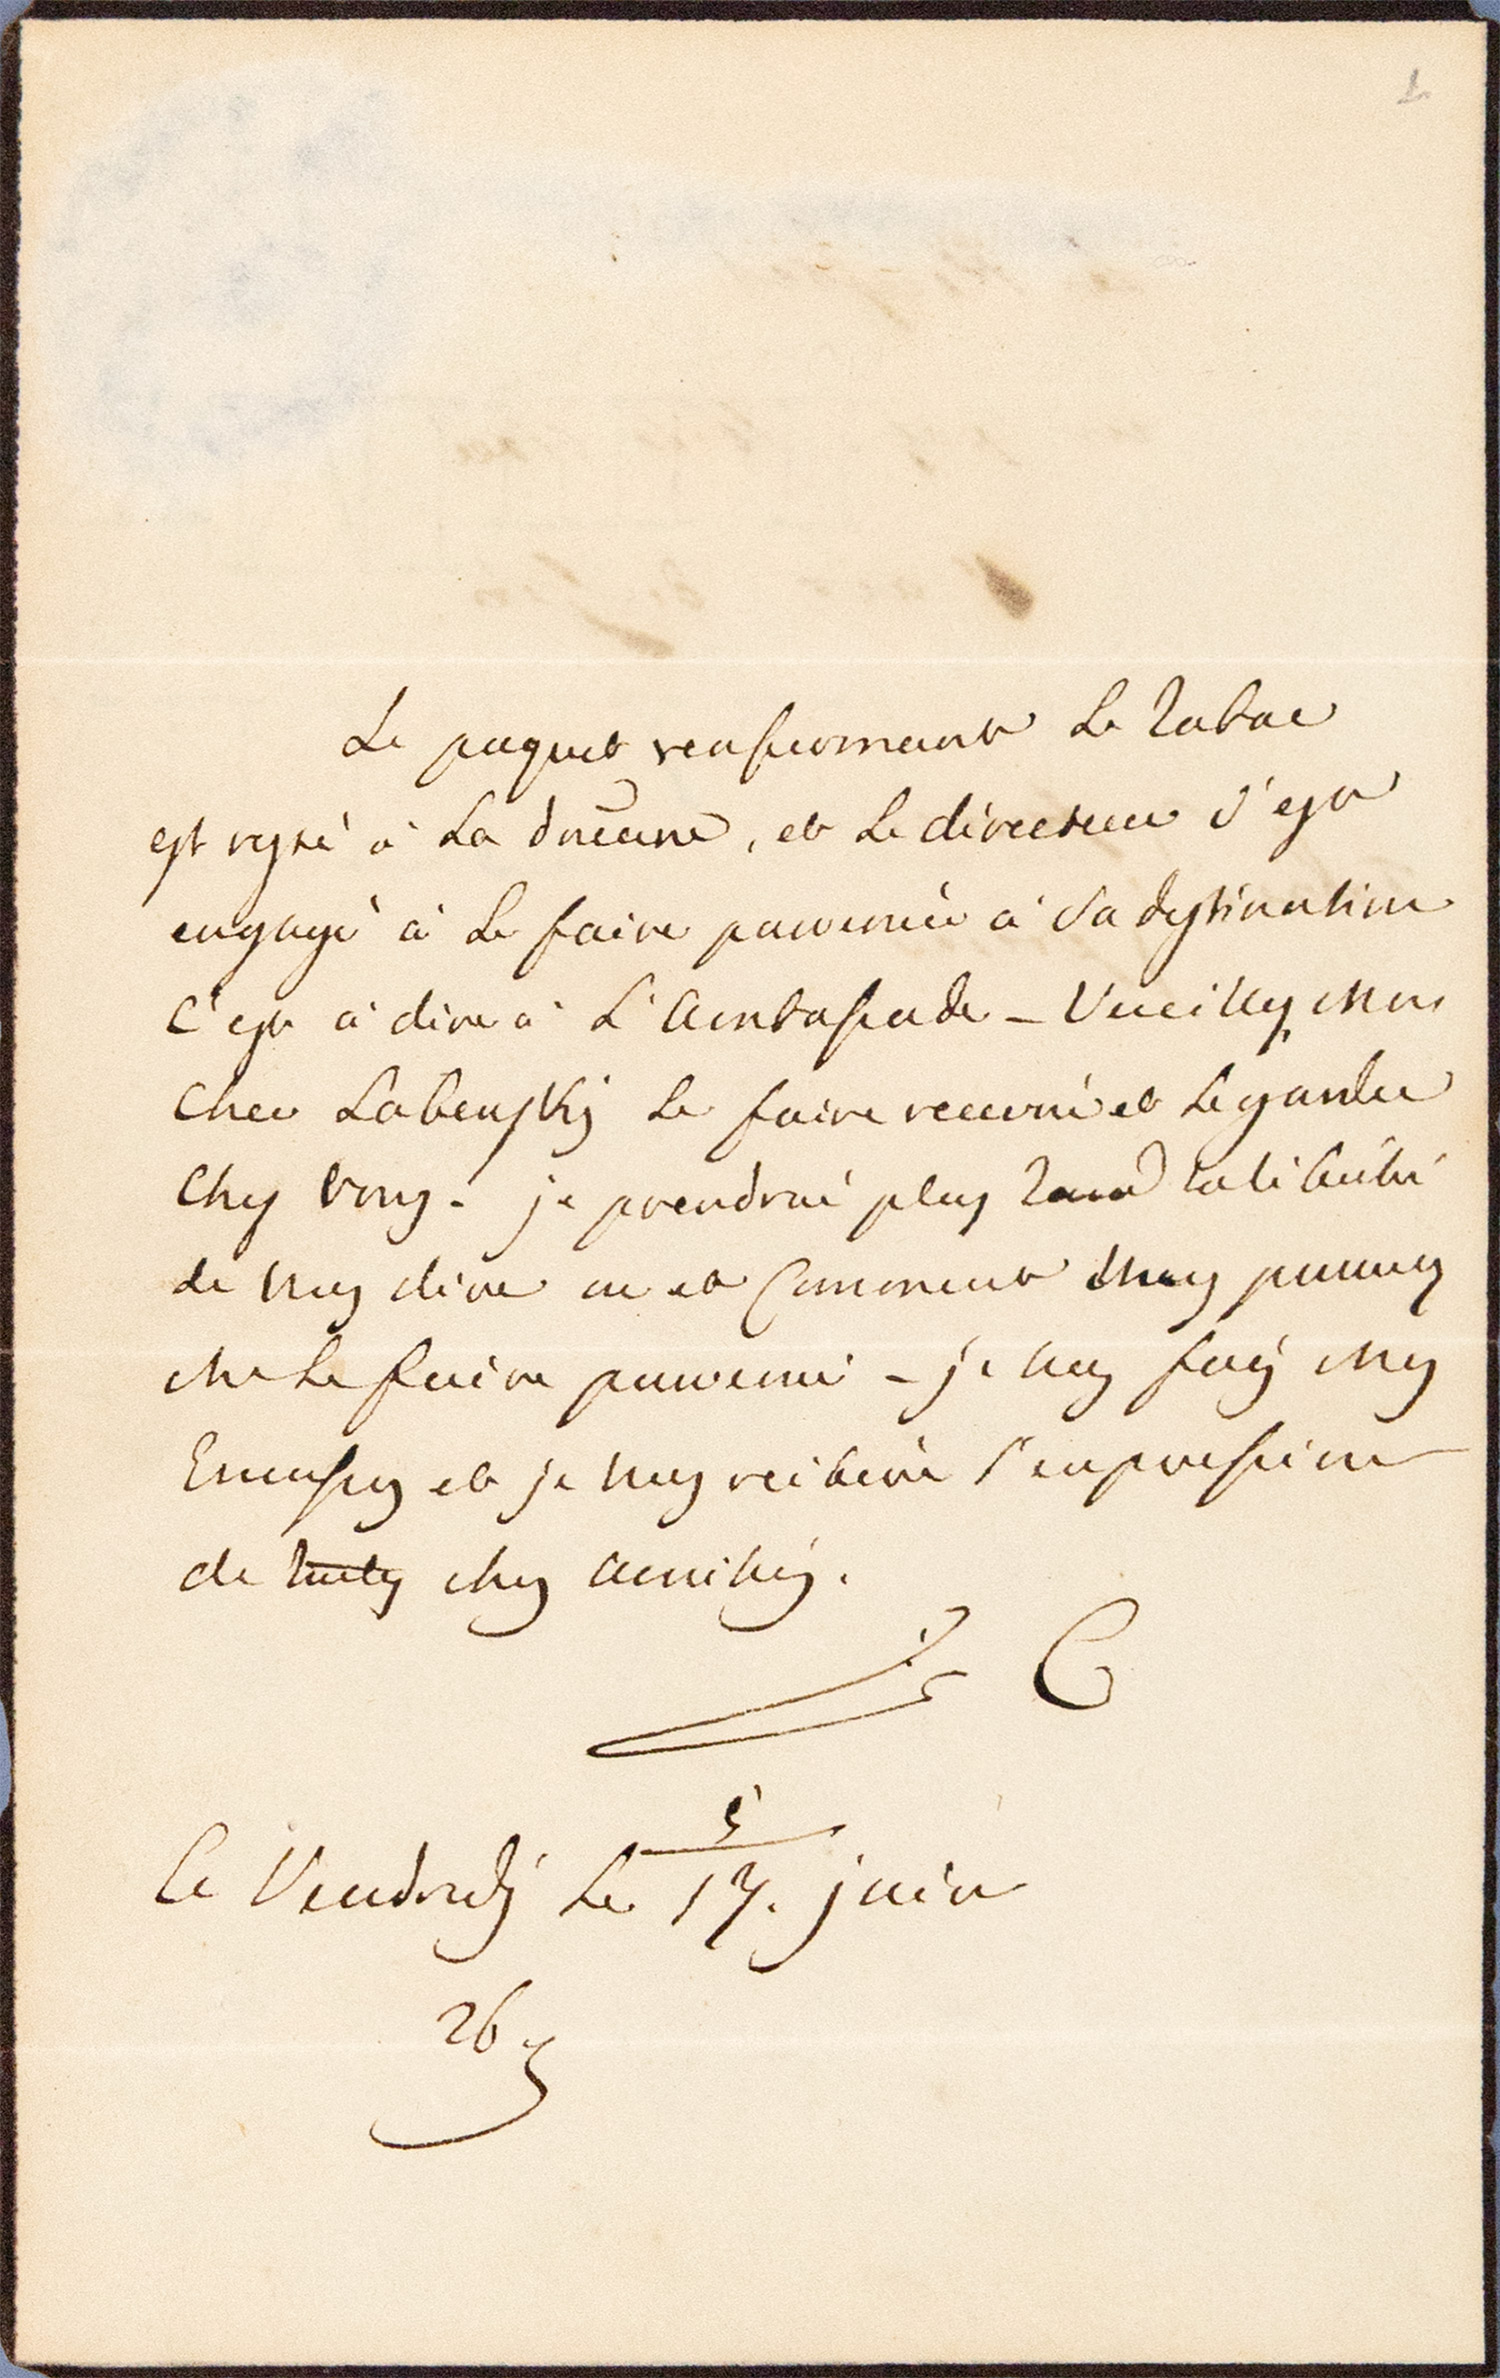 1
Le paquet renfermant le tabac
est resté à la douane, et le directeur s'est
engagé à le faire parvenir à sa destination
c'est à dire à L'Ambassade – Veuillez mon
cher Labensky le faire recevoir et le garder
chez vous. je prendrai plus tard la liberté
de vous dire où et comment vous pourrez
me le faire parvenir – je vous fais mes
Excuses et je vous réitère l'expression
de toutes mes amitiés.
C
Ce Vendredy le 5/17. juin
26